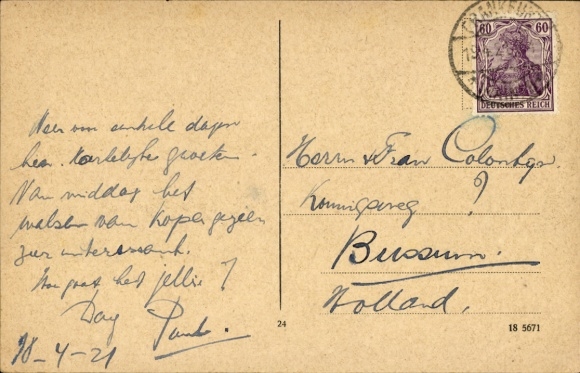 Hier voor enkele dagen
heen. Hartelijke groeten.
Van middag het
walsen van koper gezien
zeer interessant.
Hoe gaat het jullie?
Dag
18-4-21
Herrn & Frau
?
Bussum.
Holland.
60 60
DEUTSCHES REICH
FRANKFURT
24
18 5671